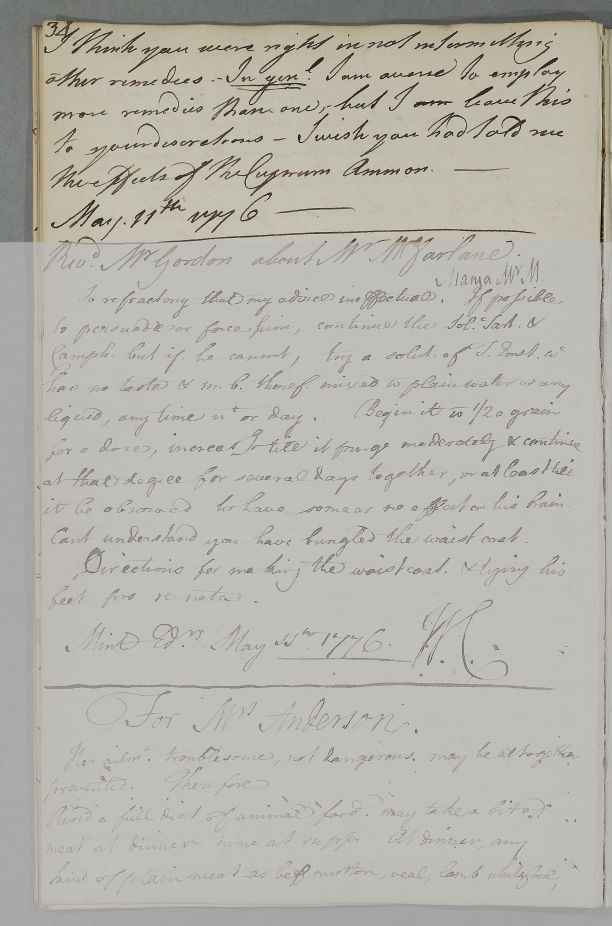 34
I think you were right in not intermitting
other remedies. - In genl. I am averse to employ
more remedies than one, - but I am leave this
to your discretions - I wish you had told me
the effects of the Cuprum Ammon.
May. 11th 1776
Revd. Mr Gordon about Mr McFarlane.
Mania Mr M
So refractory that my advice ineffectual. If possible,
to persuade or force him, continue the Sol. Tart. &
Camph. but if he cannot, try a solut. of T. Emet. wc
has no taste & m. b. theref. mixed w plain water or any
liquid, any time nt or day. Begin it w 1/2 a grain
for a dose, increas till it purge moderately & continue
at that degree for several days together, or at least till
it be observed to have some or no effect on his brain.
Cant understand you have bungled the waist coat.
Directions for making the waistcoat. & tying his
feet pro re nata.
Mint Edr. May 11th 1776. WC
For Mrs Anderson.
Her ailmt. troublesome, not dangerous. may be altogether
prevented. Therefore
Avoid a full diet of animal food. may take a bit of
meat at dinner none at supp. At dinner, any
kind of plain meat as beef mutton, veal, lamb, white